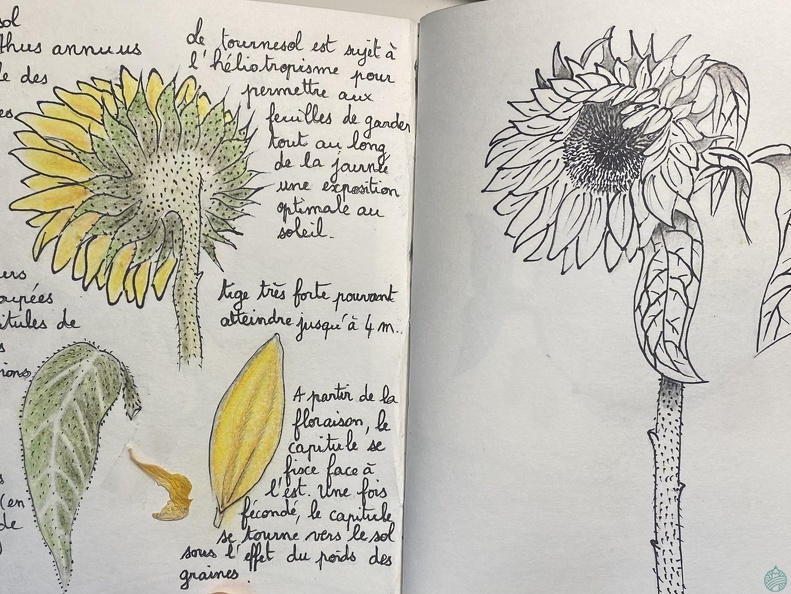 sol
thus annuus
le des
es
Le tournesol est sujet à
l'héliotropisme pour
permettre aux
feuilles de garder
tout au long
de la journée
une exposition
optimale au
soleil.
tige très forte pouvant
atteindre jusqu'à 4 m.
ers
oupées
itules de
s
ions
s
(en
de
A partir de la
floraison, le
capitule se
fixe face à
l'est. Une fois
fécondé, le capitule
se tourne vers le sol
sous l'effet du poids des
graines.